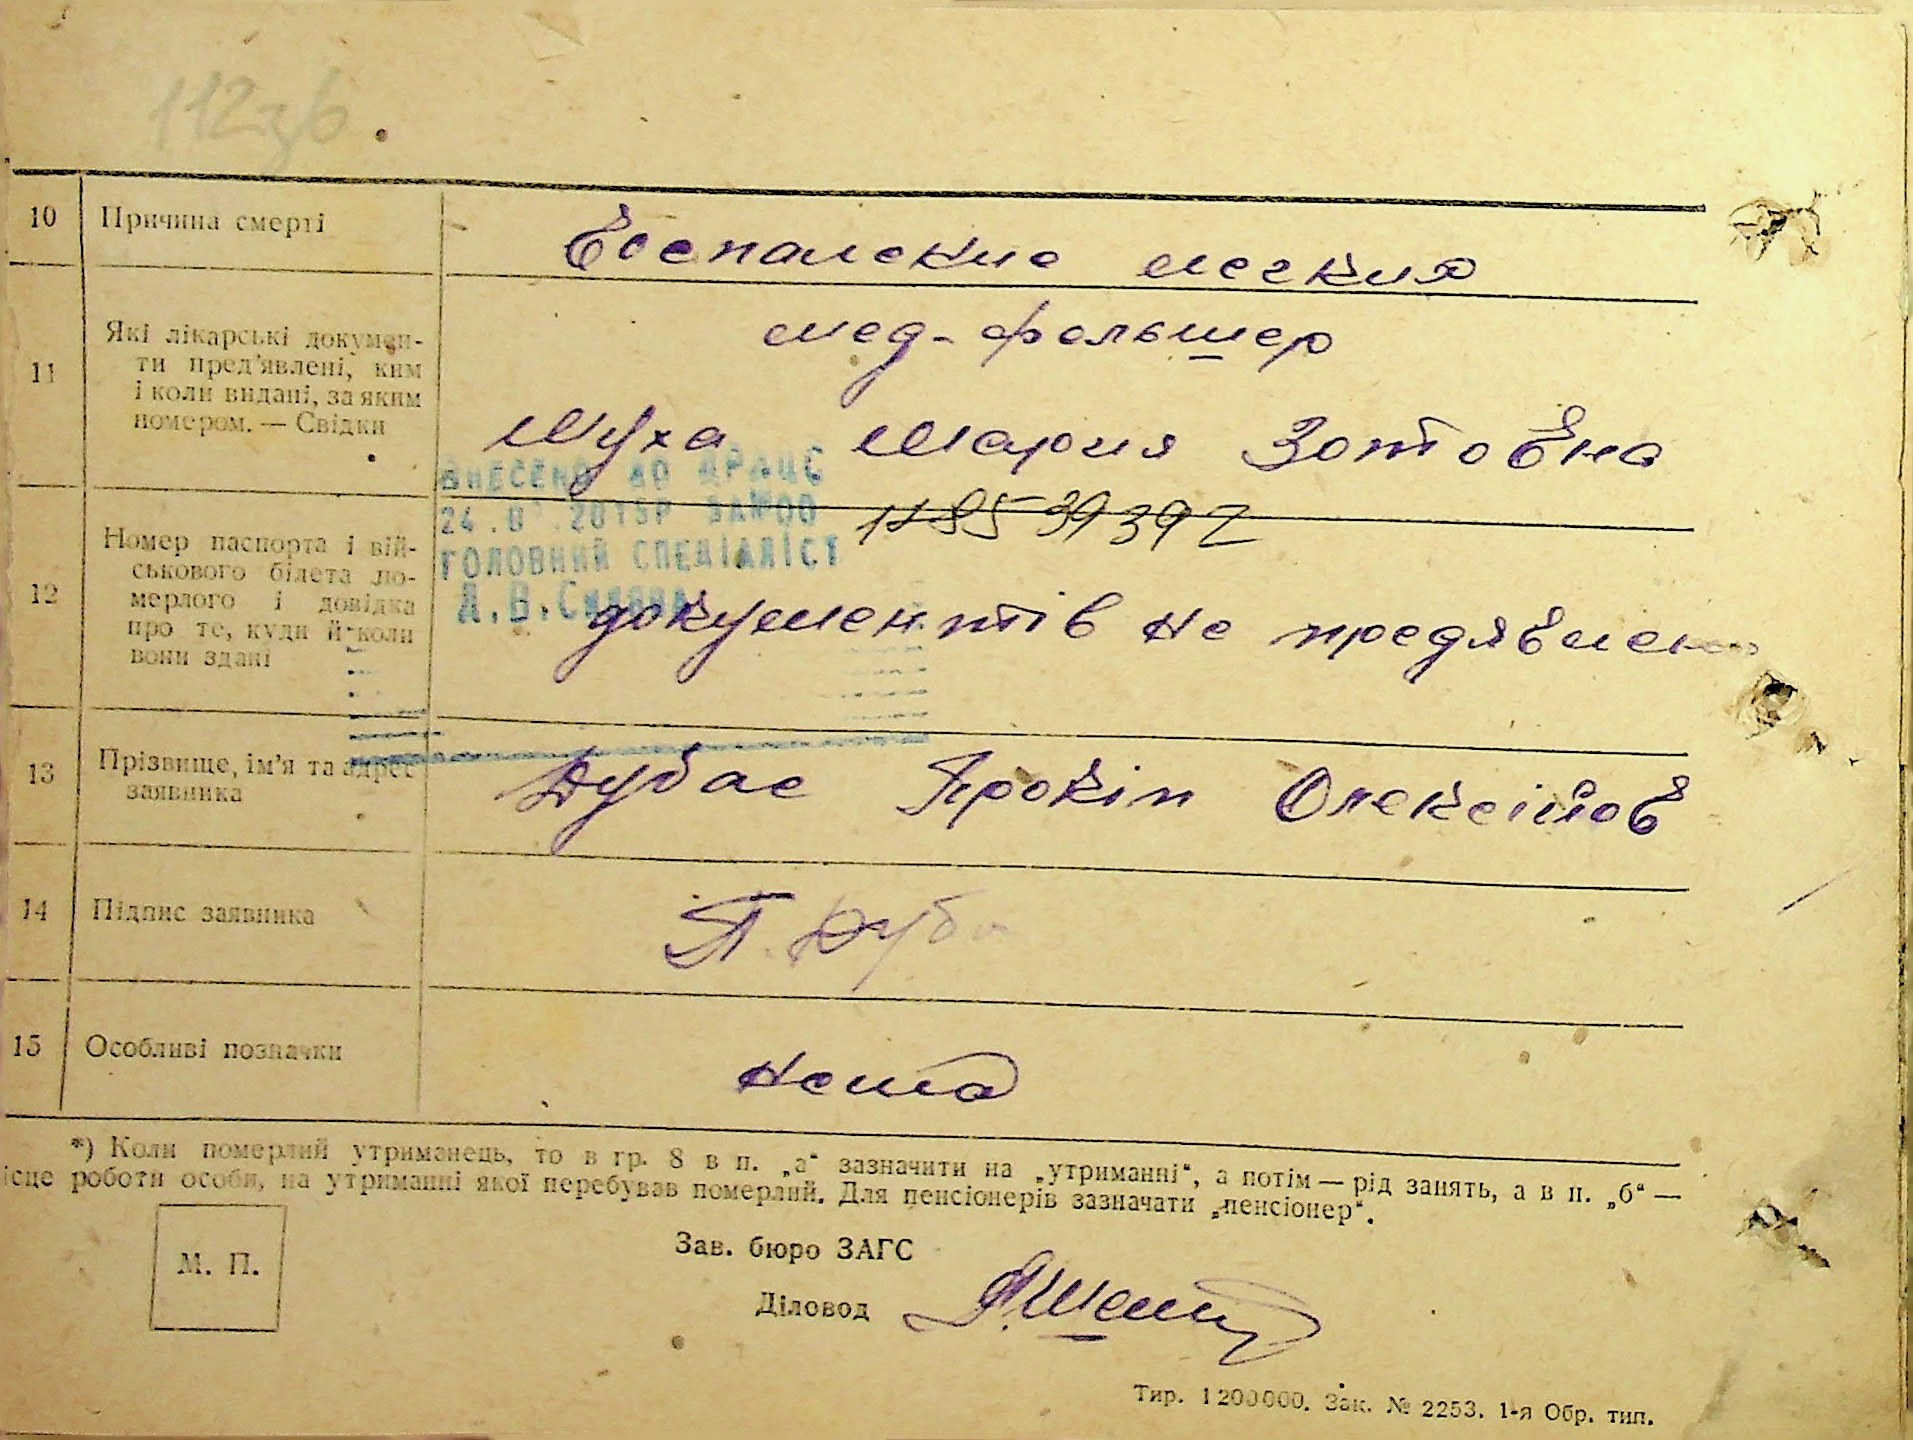 112зв
10 Причина смерті
Воспаление легкия
11 Які лікарські докумен-
ти пред'явлені, ким
і коли видані, за яким
номером. — Свідки
мед-фельшер
Муха Мария Зотовна
ВНЕСЕНО ДО ДРАЦС
ГОЛОВНИЙ СПЕЦІАЛІСТ
12 Номер паспорта і вій-
ськового білета по-
мерлого і довідка
про те, куди й коли
вони здані
документів не предявлено
13 Прізвище, ім'я та адрес
заявника
Дубас Прокіп Олексійов
14 Підпис заявника
П. Дуба
15 Особливі позначки
нема
*) Коли померлий утриманець, то в гр. 8 в п. „а“ зазначити на „утриманні“, а потім — рід занять, а в п. „б“ —
ісце роботи особи, на утриманні якої перебував померлий. Для пенсіонерів зазначати „пенсіонер“.
М. П.
Зав. бюро ЗАГС
Діловод
Тир. 1200000. Зак. № 2253. 1-я Обр. тип.